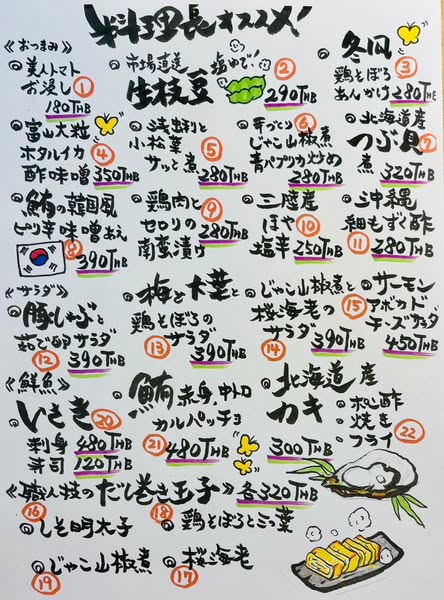 料理長オススメ!
《おつまみ》
◎美人トマト
お浸し ①
180THB
◎市場直送 塩ゆで!! ②
生枝豆
290THB
◎冬瓜 ③
鶏そぼろ
あんかけ 280THB
◎富山大粒
ホタルイカ ④
酢味噌 350THB
◎浅利と
小松菜 ⑤
サッと煮
280THB
◎手づくり ⑥
じゃこ山椒煮
青パプリカ炒め
280THB
◎北海道産
つぶ貝 ⑦
煮 320THB
◎鮪の韓国風
ピリ辛味噌和え
⑧ 390THB
◎鶏肉と ⑨
セロリの 280THB
南蛮漬け
◎三陸産
ほや ⑩
塩辛 250THB
◎沖縄
細もずく酢
⑪ 280THB
《サラダ》
◎豚しゃぶと
茹で卵サラダ
⑫ 390THB
◎梅と大葉と
鶏そぼろの
⑬ サラダ
390THB
◎じゃこ山椒煮と
桜海老の
⑭ サラダ
390THB
◎サーモン
⑮ アボカド
チーズサラダ
450THB
《鮮魚》
◎いさき ⑳
刺身 480THB
寿司 120THB
◎鮪 赤身、中トロ
カルパッチョ
㉑ 480THB
◎北海道産
カキ
300THB
◎ポン酢
◎焼き
◎フライ ㉒
《職人技のだし巻き玉子》各320THB
⑯ ◎しそ明太子
⑱ ◎鶏そぼろと三つ葉
◎じゃこ山椒煮
⑲
◎桜海老
⑰